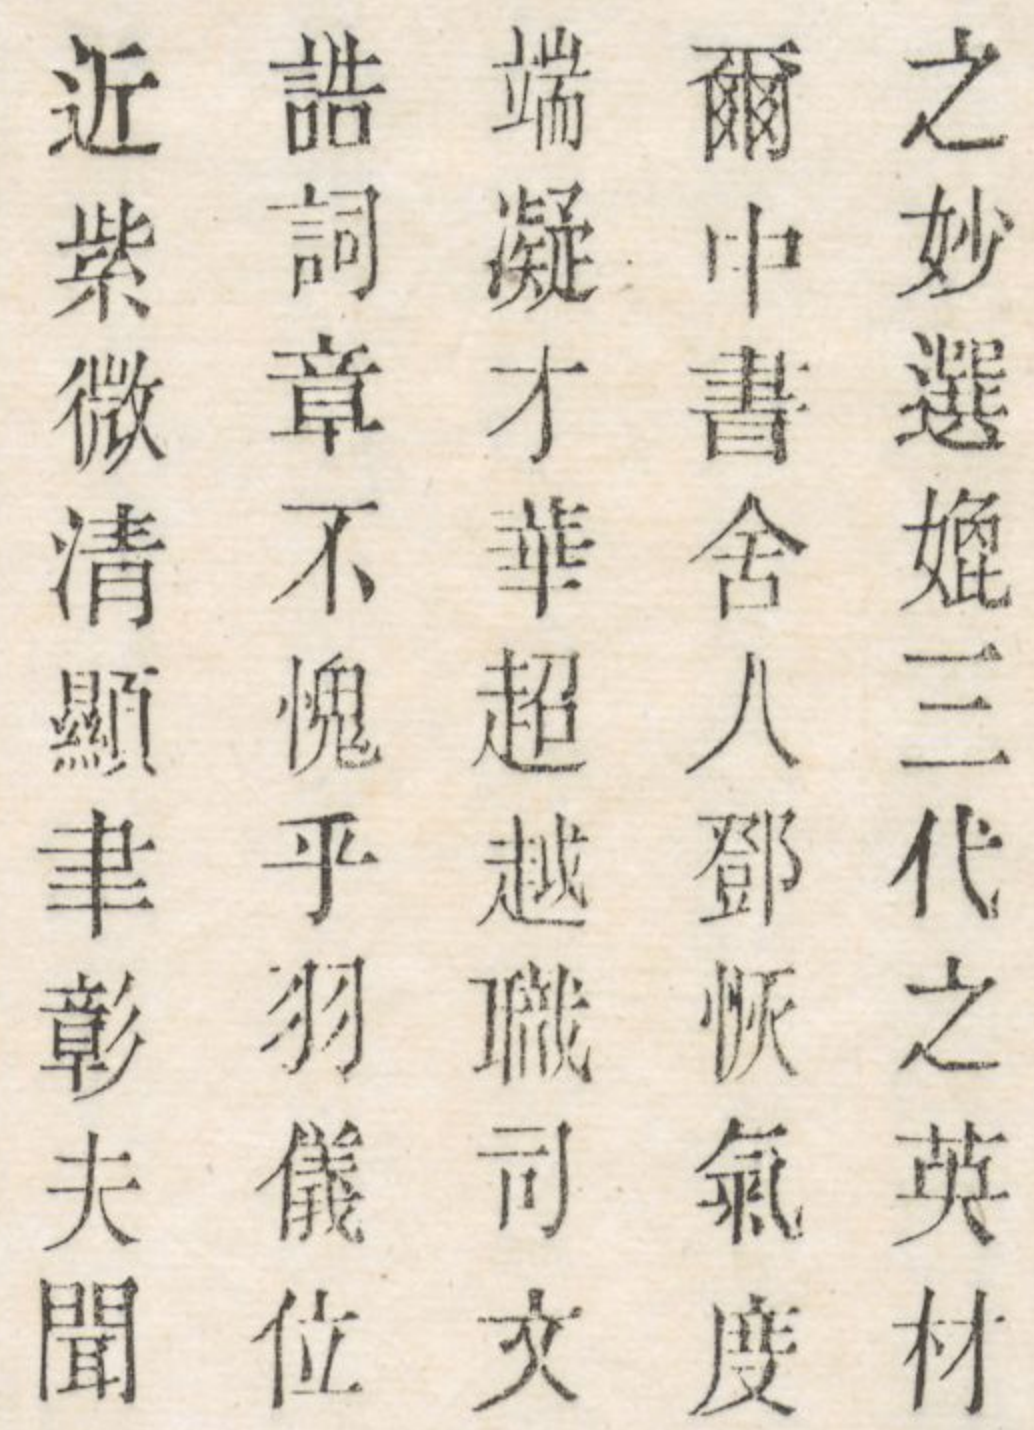 之妙選媲三代之英材
爾中書舍人鄧恢氣度
端凝才華超越職司文
誥詞章不愧乎羽儀位
近紫微清顯聿彰夫聞